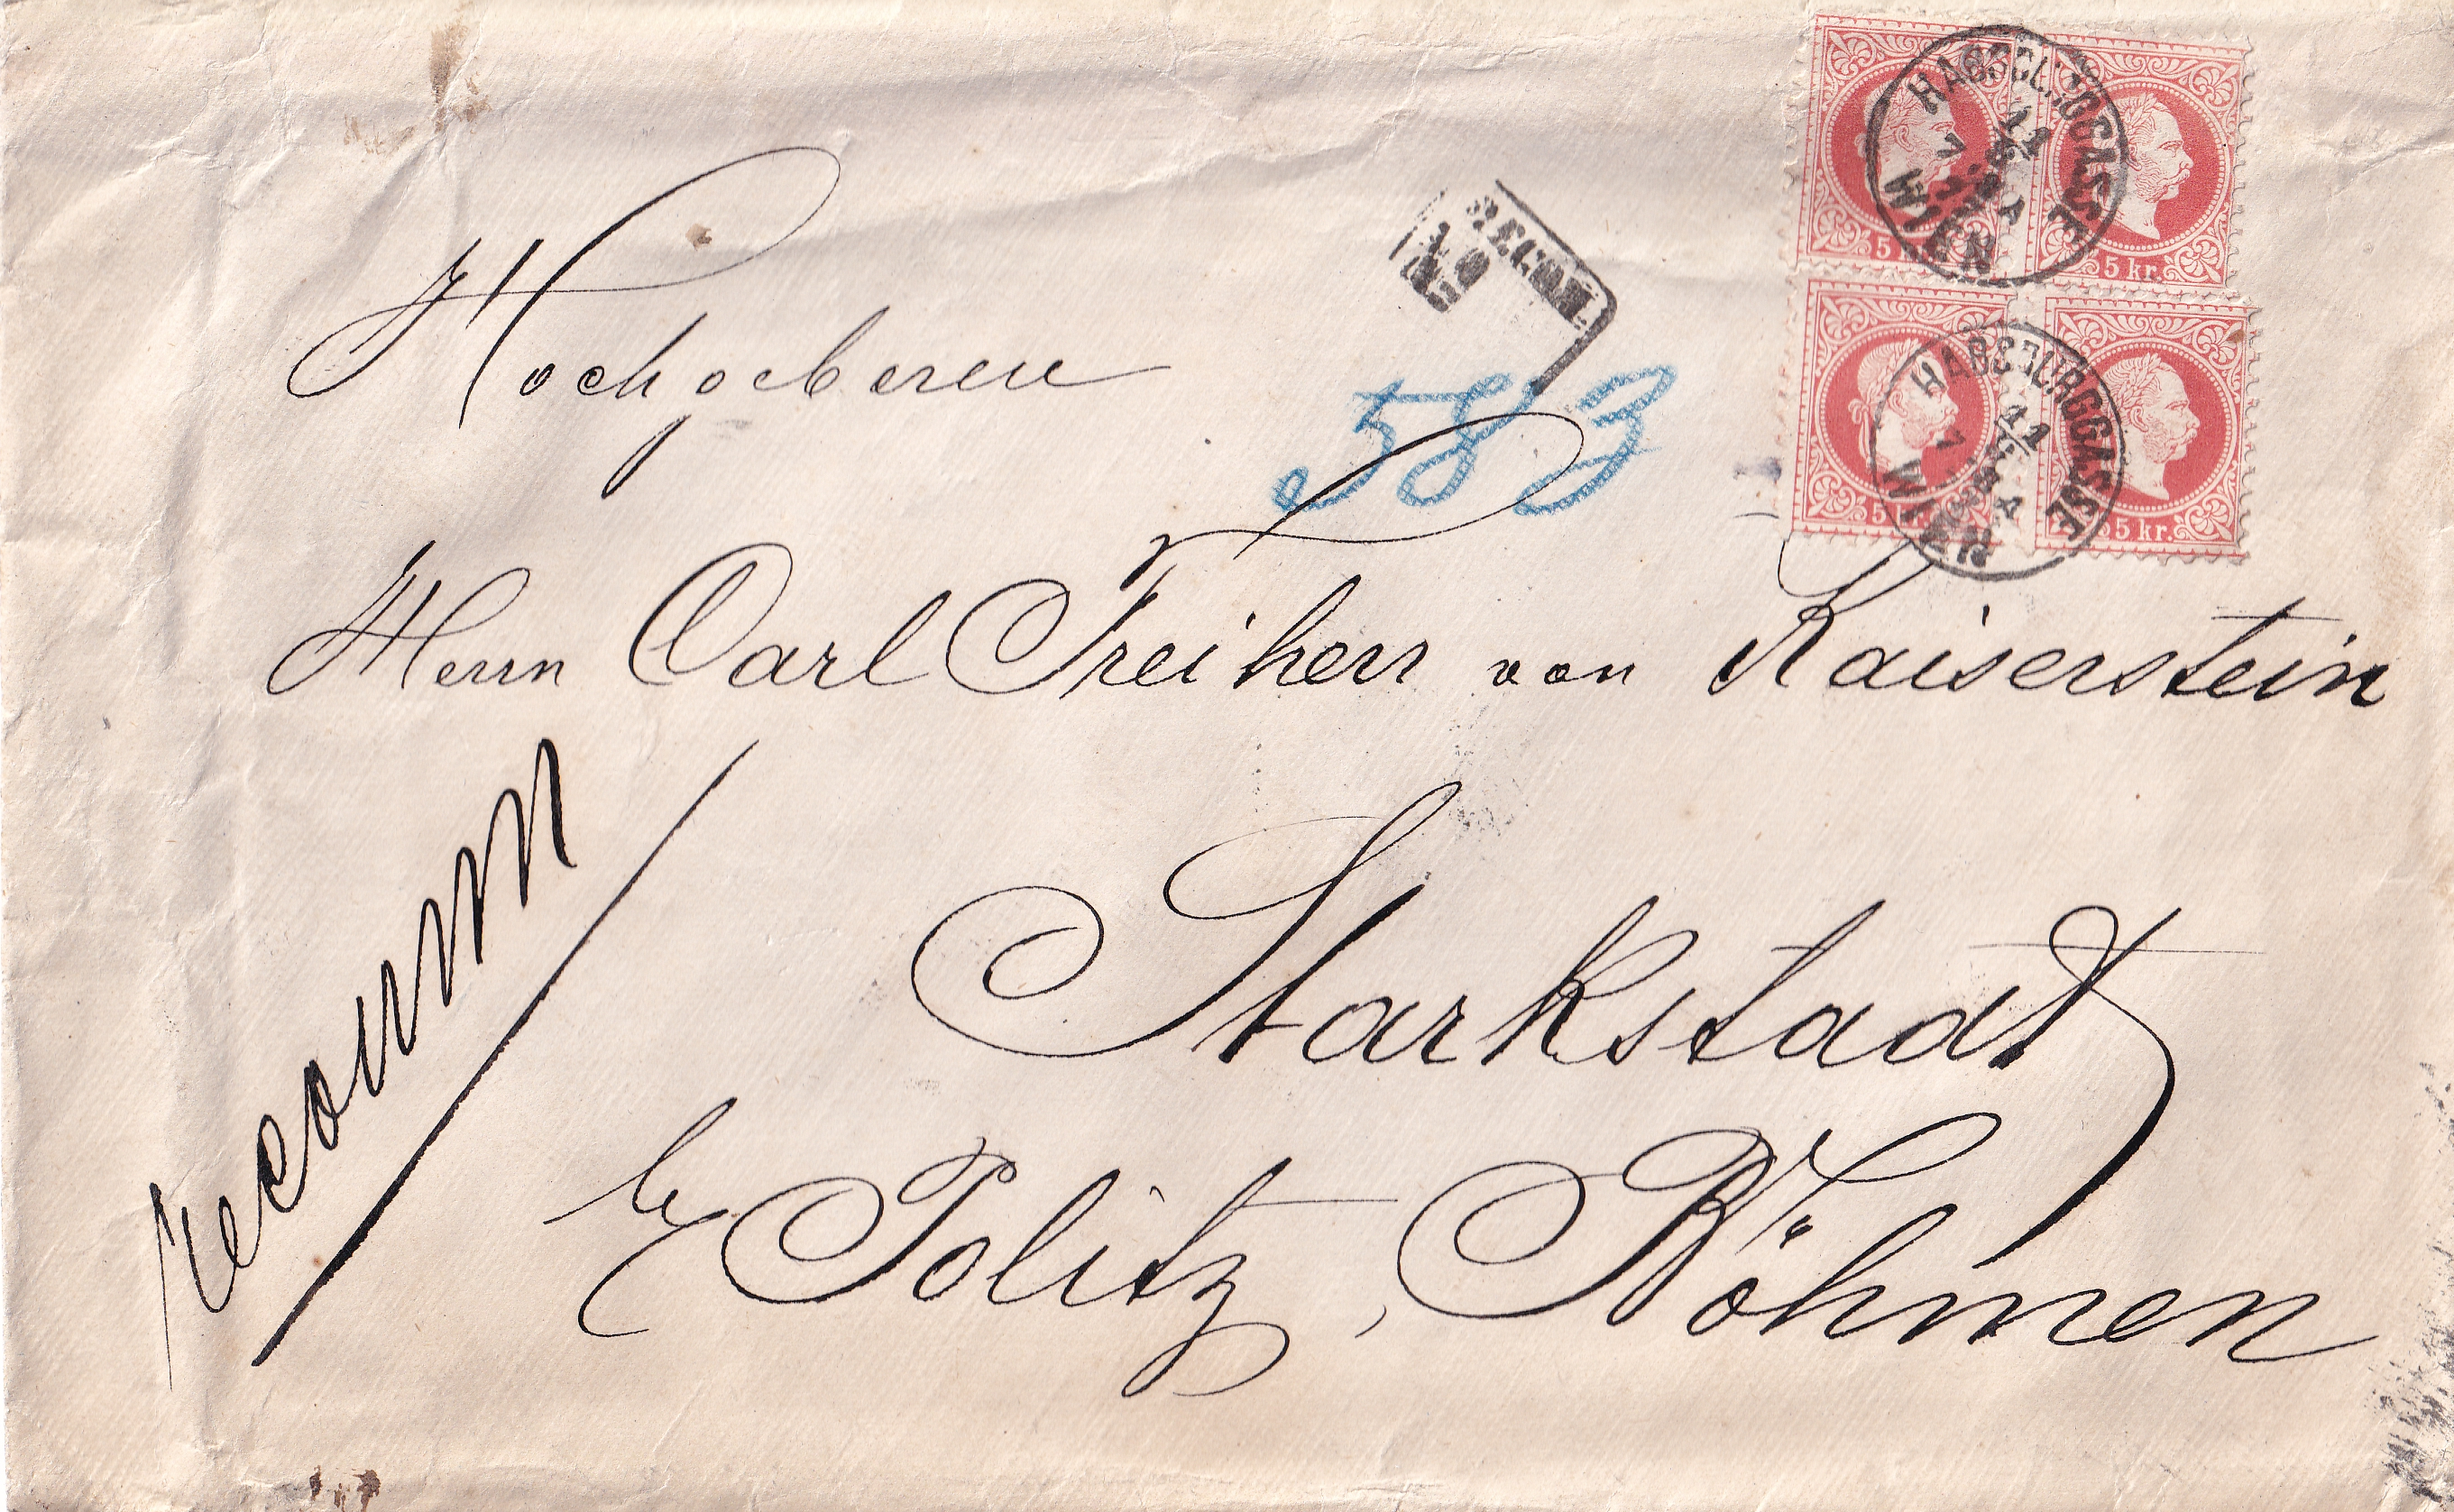 Hochgeboren
RECOM.
No
583
Herrn Carl Freiherr von Kaiserstein
recomm
Starkstadt
by Politz, Böhmen
HABSBURGGASSE
WIEN
5 kr.
5 kr.
HABSBURGGASSE
11
WIEN
5 kr.
5 kr.